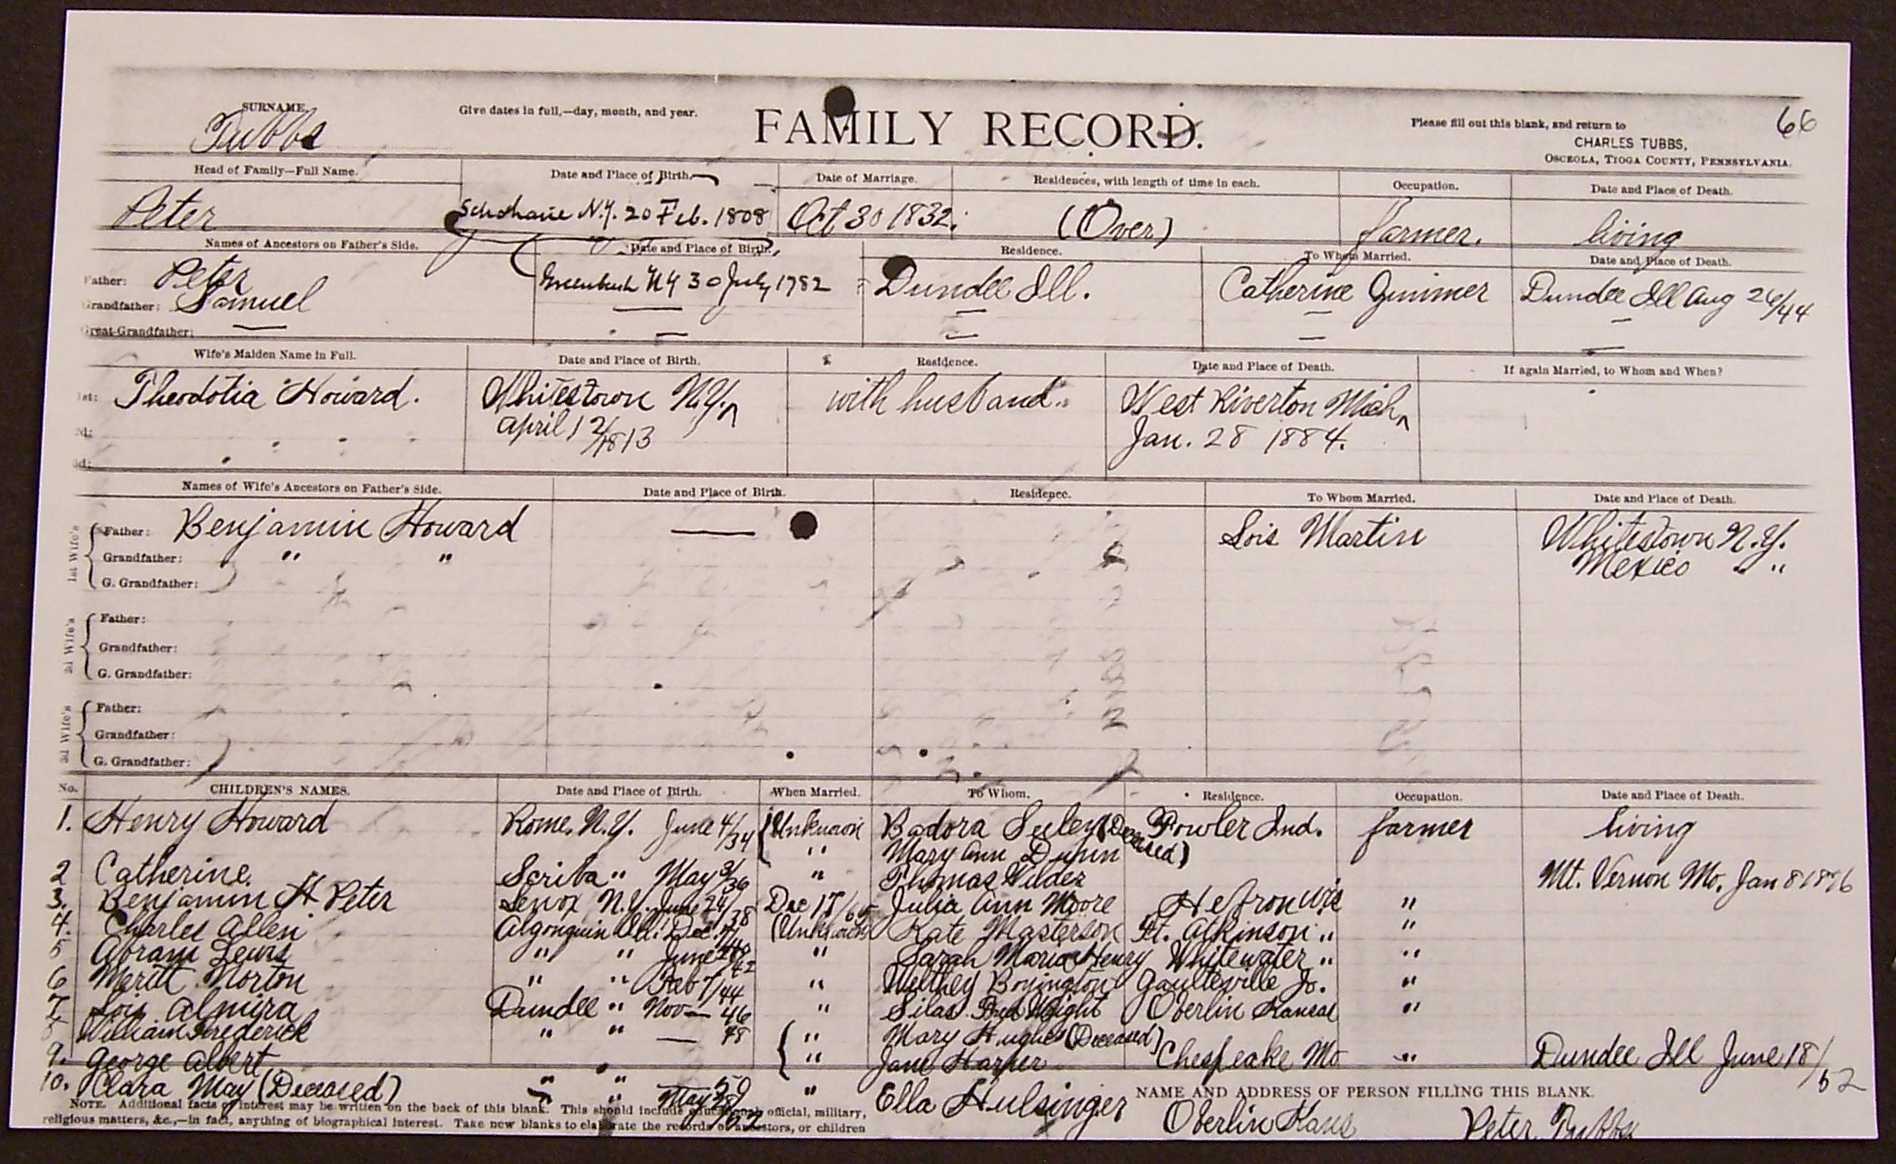 SURNAME.
Tubbs
Give dates in full,—day, month, and year.
FAMILY RECORD.
Please fill out this blank, and return to
CHARLES TUBBS,
OSCEOLA, TIOGA COUNTY, PENNSYLVANIA.
66
Head of Family—Full Name. Date and Place of Birth. Date of Marriage. Residences, with length of time in each. Occupation. Date and Place of Death.
Peter Schoharie N.Y. 20 Feb. 1808 Oct 30 1832. (Over) farmer. living
Names of Ancestors on Father's Side. Date and Place of Birth. Residence. To Whom Married. Date and Place of Death.
Father: Peter Greenbush N.Y 30 July 1782 Dundee Ill. Catherine Dundee Ill Aug 26/44
Grandfather: Samuel — — — —
Great-Grandfather: — — — — —
Wife's Maiden Name in Full. Date and Place of Birth. Residence. Date and Place of Death. If again Married, to Whom and When?
1st: Theodotia Howard. Whitestown N.Y. with husband. West Riverton Mich
April 12/1813 Jan. 28 1884.
2d:
3d:
Names of Wife's Ancestors on Father's Side. Date and Place of Birth. Residence. To Whom Married. Date and Place of Death.
1st Wife's
Father: Benjamin Howard — Lois Martin Whitestown N.Y.
Grandfather: " " Mexico " "
G. Grandfather:
2d Wife's
Father:
Grandfather:
G. Grandfather:
3d Wife's
Father:
Grandfather:
G. Grandfather:
No. CHILDREN'S NAMES. Date and Place of Birth. When Married. To Whom. Residence. Occupation. Date and Place of Death.
1. Henry Howard Rome. N.Y. June 4/34 Unknown Badora Seeley (Deceased) Fowler Ind. farmer living
" Mary Ann Dunn
2 Catherine Scriba " May 3/36 " Thomas Wilder Mt. Vernon Mo. Jan 8 1876
3. Benjamin H Peter Lenox N.Y. June 24/38 Dec 17/65 Julia Ann Moore Hebron Wis "
4. Charles Allen Algonquin Ill. Dec (Unknown) Kate Masterson Ft. Atkinson " "
5 Abram Lewis " " June /42 " Sarah Maria Henry Whitewater " "
6 Meritt Norton " " Feb 7/44 " Boyington Jo. "
7. Lois Almira Dundee " Nov — 46 " Silas Wright Oberlin Kansas "
8 William Frederick " " — 48 " Mary Hughes (Deceased)
" Jane Harper Chespeake Mo "
9. George Albert Dundee Ill June 18/52
10. Clara May (Deceased) " " May " Ella Hulsinger
NAME AND ADDRESS OF PERSON FILLING THIS BLANK.
Oberlin Kans Peter Tubbs
NOTE. Additional facts of interest may be written on the back of this blank. This should include educational, official, military,
religious matters, &c.,—in fact, anything of biographical interest. Take new blanks to elaborate the records of ancestors, or children